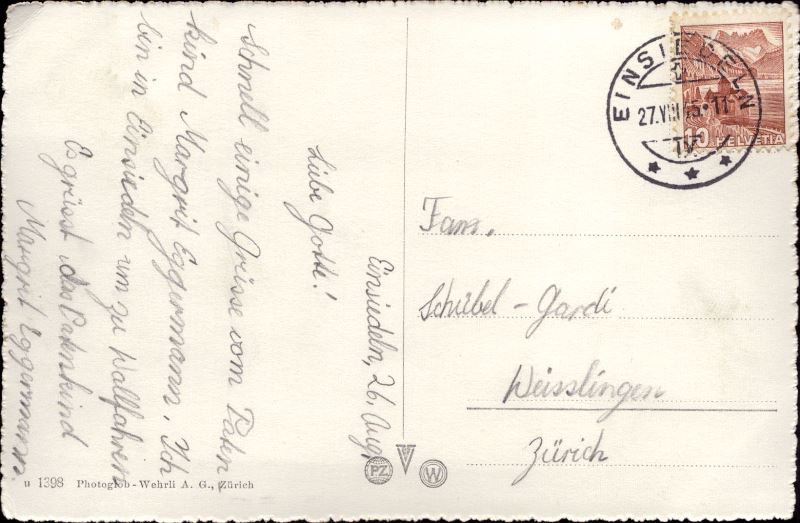 Einsiedeln, 26. Aug.
Liebe Gotte!
Schnell einige Grüsse vom Paten
kind Margrit Eggermann. Ich
bin in Einsiedeln um zu Wallfahren
Es grüsst das Patenkind
Margrit Eggermann.
EINSIEDELN
27.VIII 45·11-
IV.
10 HELVETIA
Fam.
Schübel-Gardi
Weisslingen
Zürich
PZ
W
u 1398 Photoglob-Wehrli A. G., Zürich